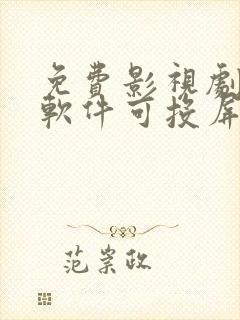 免費影視劇
軟件可投屏
范崇政